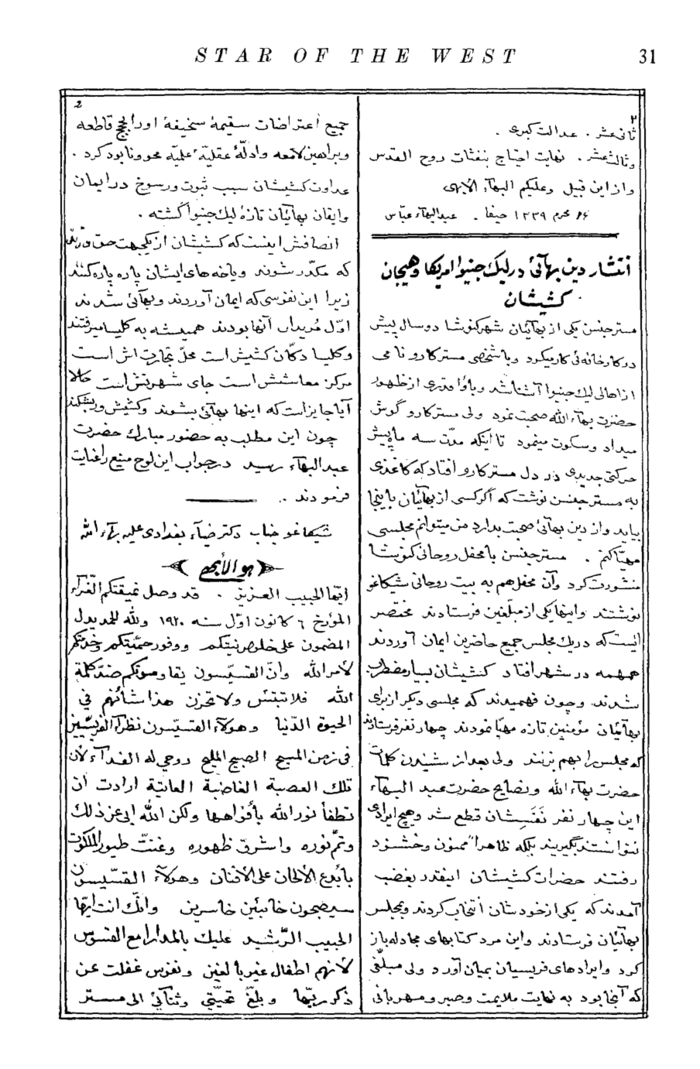 STAR OF THE WEST
31
٢
ثانی عشر . عدالت کبری .
و ثالث عشر . نهایت احتیاج بنفثات روح القدس
و از این قبیل و علیکم البهاء الأبهی
محرم ١٣٣٩ حیفا . عبدالبهاء عباس
انتشار دین بهائی در لیک جنیوا امریکا و هیجان
کشیشان
مستر جنسن یکی از بهائیان شهر کنوشا دو سال پیش
در کارخانه ئی کار میکرد و با شخصی مستر کارو نامی
از اهالی لیک جنیوا آشنا شد و با او قدری از ظهور
حضرت بهاء الله صحبت نمود ولی مستر کارو گوش
میداد و سکوت مینمود تا آنکه مدّت سه ماه پیش
حرکتی جدیدی در دل مستر کارو افتاد که کاغذی
به مستر جنسن نوشت که اگر کسی از بهائیان باینجا
بیاید و از دین بهائی صحبت بدارد من میتوانم مجلسی
مهیّا کنم . مستر جنسن با محفل روحانی کنوشا
مشورت کرد و آن محفل هم به بیت روحانی شیکاغو
نوشتند و اینها یکی از مبلغین فرستادند مختصر
اینست که در یک مجلس جمیع حاضرین ایمان آوردند
همهمه در شهر افتاد کشیشان بسیار مضطرب
شدند و چون فهمیدند که مجلسی دیگر از برای
بهائیان مؤمنین تازه مهیّا نمودند چهار نفر فرستادند
که مجلس را بهم بزنند ولی بعد از شنیدن کلمات
حضرت بهاء الله و نصایح حضرت عبد البهاء
این چهار نفر نَفَسِشان قطع شد و هیچ ایرادی
نتوانستند بگیرند بلکه ظاهراً ممنون و خشنود
رفتند حضرات کشیشان اینقدر بغضب
آمدند که یکی از خودشان انتخاب کردند و بمجلس
بهائیان فرستادند و این مرد کتابهای مجادله باز
کرد و ایرادهای فریسیان بمیان آورد ولی مبلّغی
که آنجا بود به نهایت ملایمت و صبر و مهربانی
جمیع اعتراضات سقیمهٔ سخیفهٔ او را بحجج قاطعه
و براهین لامعه و ادلّهٔ عقلیّه علیّه محو و نابود کرد .
عداوت کشیشان سبب ثبوت و رسوخ در ایمان
و ایقان بهائیان تازهٔ لیک جنیوا گشته .
انصافش اینست که کشیشان از یکجهت حق دارند
که مکدّر شوند و یاخه های ایشان پاره پاره کنند
زیرا این نفوسی که ایمان آوردند و بهائی شدند
اوّل مُریدان آنها بودند همیشه به کلیسا میرفتند
و کلیسا دکّان کشیش است محلّ تجارت اش است
مرکز معاشش است جای شهرتش است حالا
آیا جایز است که اینها بهائی بشوند و کشیش و ریشکند
چون این مطلب به حضور مبارک حضرت
عبد البهاء رسید در جواب این لوح منیع را عنایت
فرمودند .
شیکاغو جناب دکتر ضیاء بغدادی علیه بهآء الله
هو الأبهی
ایّها الحبیب العزیز . قد وصل نمیقتکم الغرّاء
المؤرخ ٦ کانون اوّل سنه ١٩٢٠ ولله الحمد یدل
المضمون علی خلوص نیّتکم و وفور حمیّتکم و خدمتکم
لأمر الله و أنّ القسّیسون یقاومونکم ضدّ کلمة
الله فلا تبتئس و لا تحزن هذا شأنهم فی
الحیوة الدّنیا و هؤلاء القسّیسون نظراء الفریسیین
فی زمن المسیح الصبیح الملیح روحی له الفداء لأن
تلک العصبة الغاضبة العاتیة ارادت أن
تطفأ نور الله بأفواهها و لکن الله ابی عن ذلک
و تمّ نوره و اشرق ظهوره و غنّت طیور الملکوت
بابدع الألحان علی الأفنان و هؤلاء القسّیسون
سیصبحون خائبین خاسرین و انّک انت ایّها
الحبیب الرّشید علیک بالمدارا مع القسوس
لأنهم اطفال غیر بالغین و نفوس غفلت عن
ذکر ربّها و بلّغ تحیّتی و ثنائی الی مستر